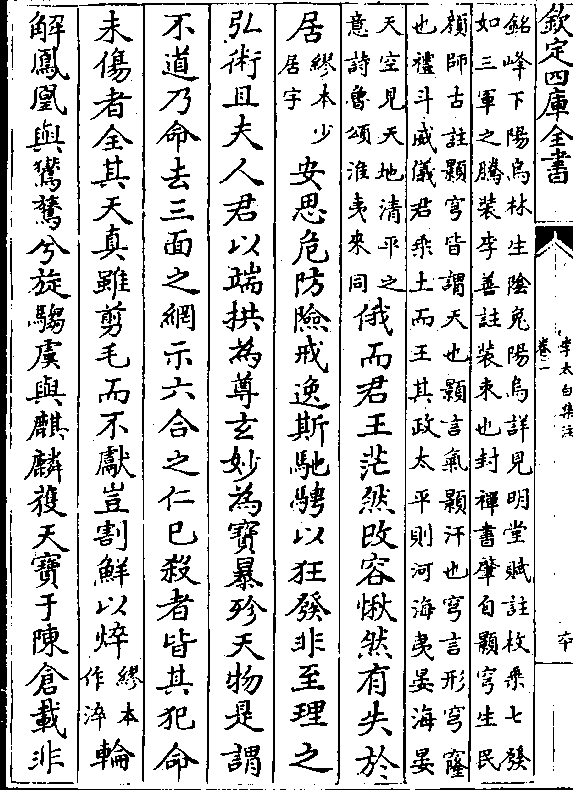 欽定四庫全書
李太白集注
卷一
六十
銘峰下陽烏林生陰兔陽烏詳見明堂賦註枚乗七發
如三軍之騰装李善註装束也封禪書肇自顥穹生民
顔師古註顥穹皆謂天也顥言氣顥汗也穹言形穹窿
也禮斗威儀君乗土而王其政太平則河海夷晏海晏
天空見天地清平之
意詩魯頌淮夷來同
俄而君王茫然改容愀然有失於
居
繆本少
居字
安思危防險戒逸斯馳騁以狂發非至理之
弘術且夫人君以端拱為尊玄妙為寳暴殄天物是謂
不道乃命去三面之網示六合之仁已殺者皆其犯命
未傷者全其天真雖剪毛而不獻豈割鮮以焠
繆本
作淬
輪
解鳳凰與鸑鷟兮旋騶虞與麒麟獲天寳于陳倉載非